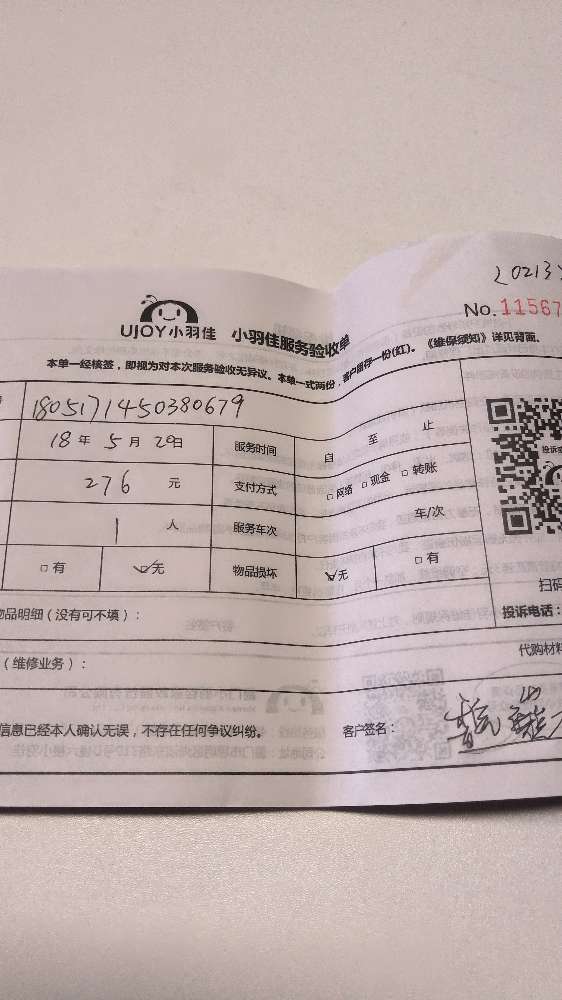 20213
No. 11567
UJOY小羽佳 小羽佳服务验收单
本单一经核签，即视为对本次服务验收无异议。本单一式两份，客户留存一份(红)。《维保须知》详见背面。
1805171450380679
18 年 5 月 20日 服务时间 自 至 止
276 元 支付方式 □ 网络 □ 现金 □ 转账
1 人 服务车次 车/次
□ 有 ☑无 物品损坏 ☑无 □ 有
扫码
物品明细（没有可不填）：
投诉电话：
（维修业务）：
代购材料
信息已经本人确认无误，不存在任何争议纠纷。 客户签名：